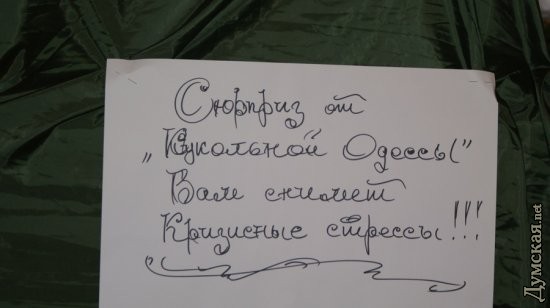 Сюрприз от
„Кукольной Одессы"
Вам снимет
Кризисные стрессы!!!
Думская.net